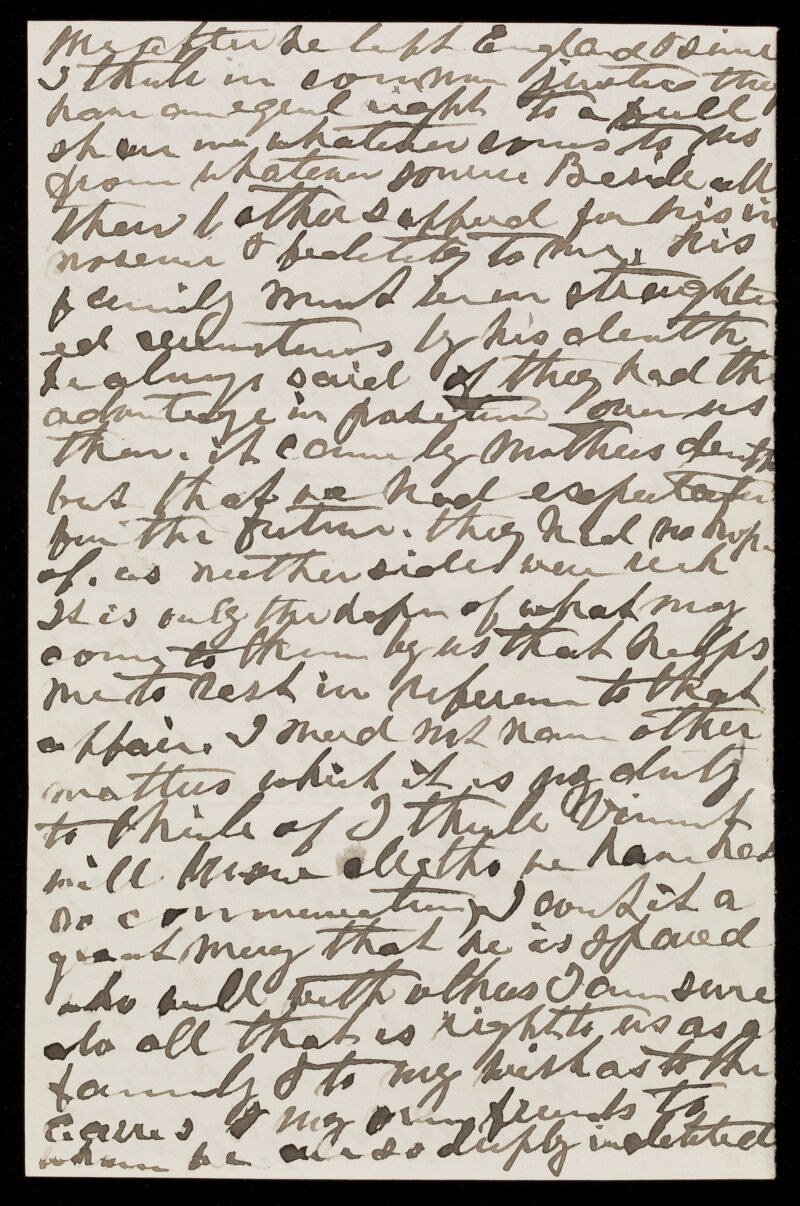 me after he left England & since
I think in common justice they
have an equal right to a full
share in whatever comes to us
from whatever source Beside all
their father suffered for his in
nosence & fedility to me, his
family must be in straighten
ed circumstances by his death
he always said if they had the
advantage in position over us
then. it came by mothers death
but that we had expectation
for the future. they had no hope
of. as neither sides were rich
It is only the hope of what may
come to them by us that helps
me to rest in reference to that
affair. I need not name other
matters which it is my duty
to think of I think Vincent
will know altho we have had
no communication, I count it a
great mercy that he is spared
who will with others I am sure
do all that is right to us as a
family & to my wish as to the
& my own friends to
whom we are so deeply indebted